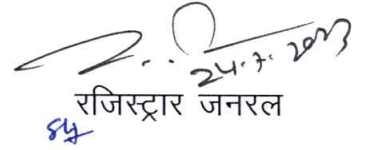 24.7.2023
रजिस्ट्रार जनरल